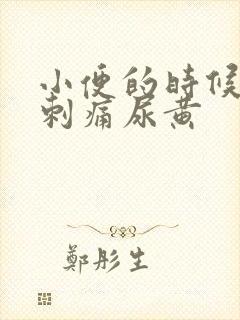 小便的時候
刺痛尿黄
鄭彤生